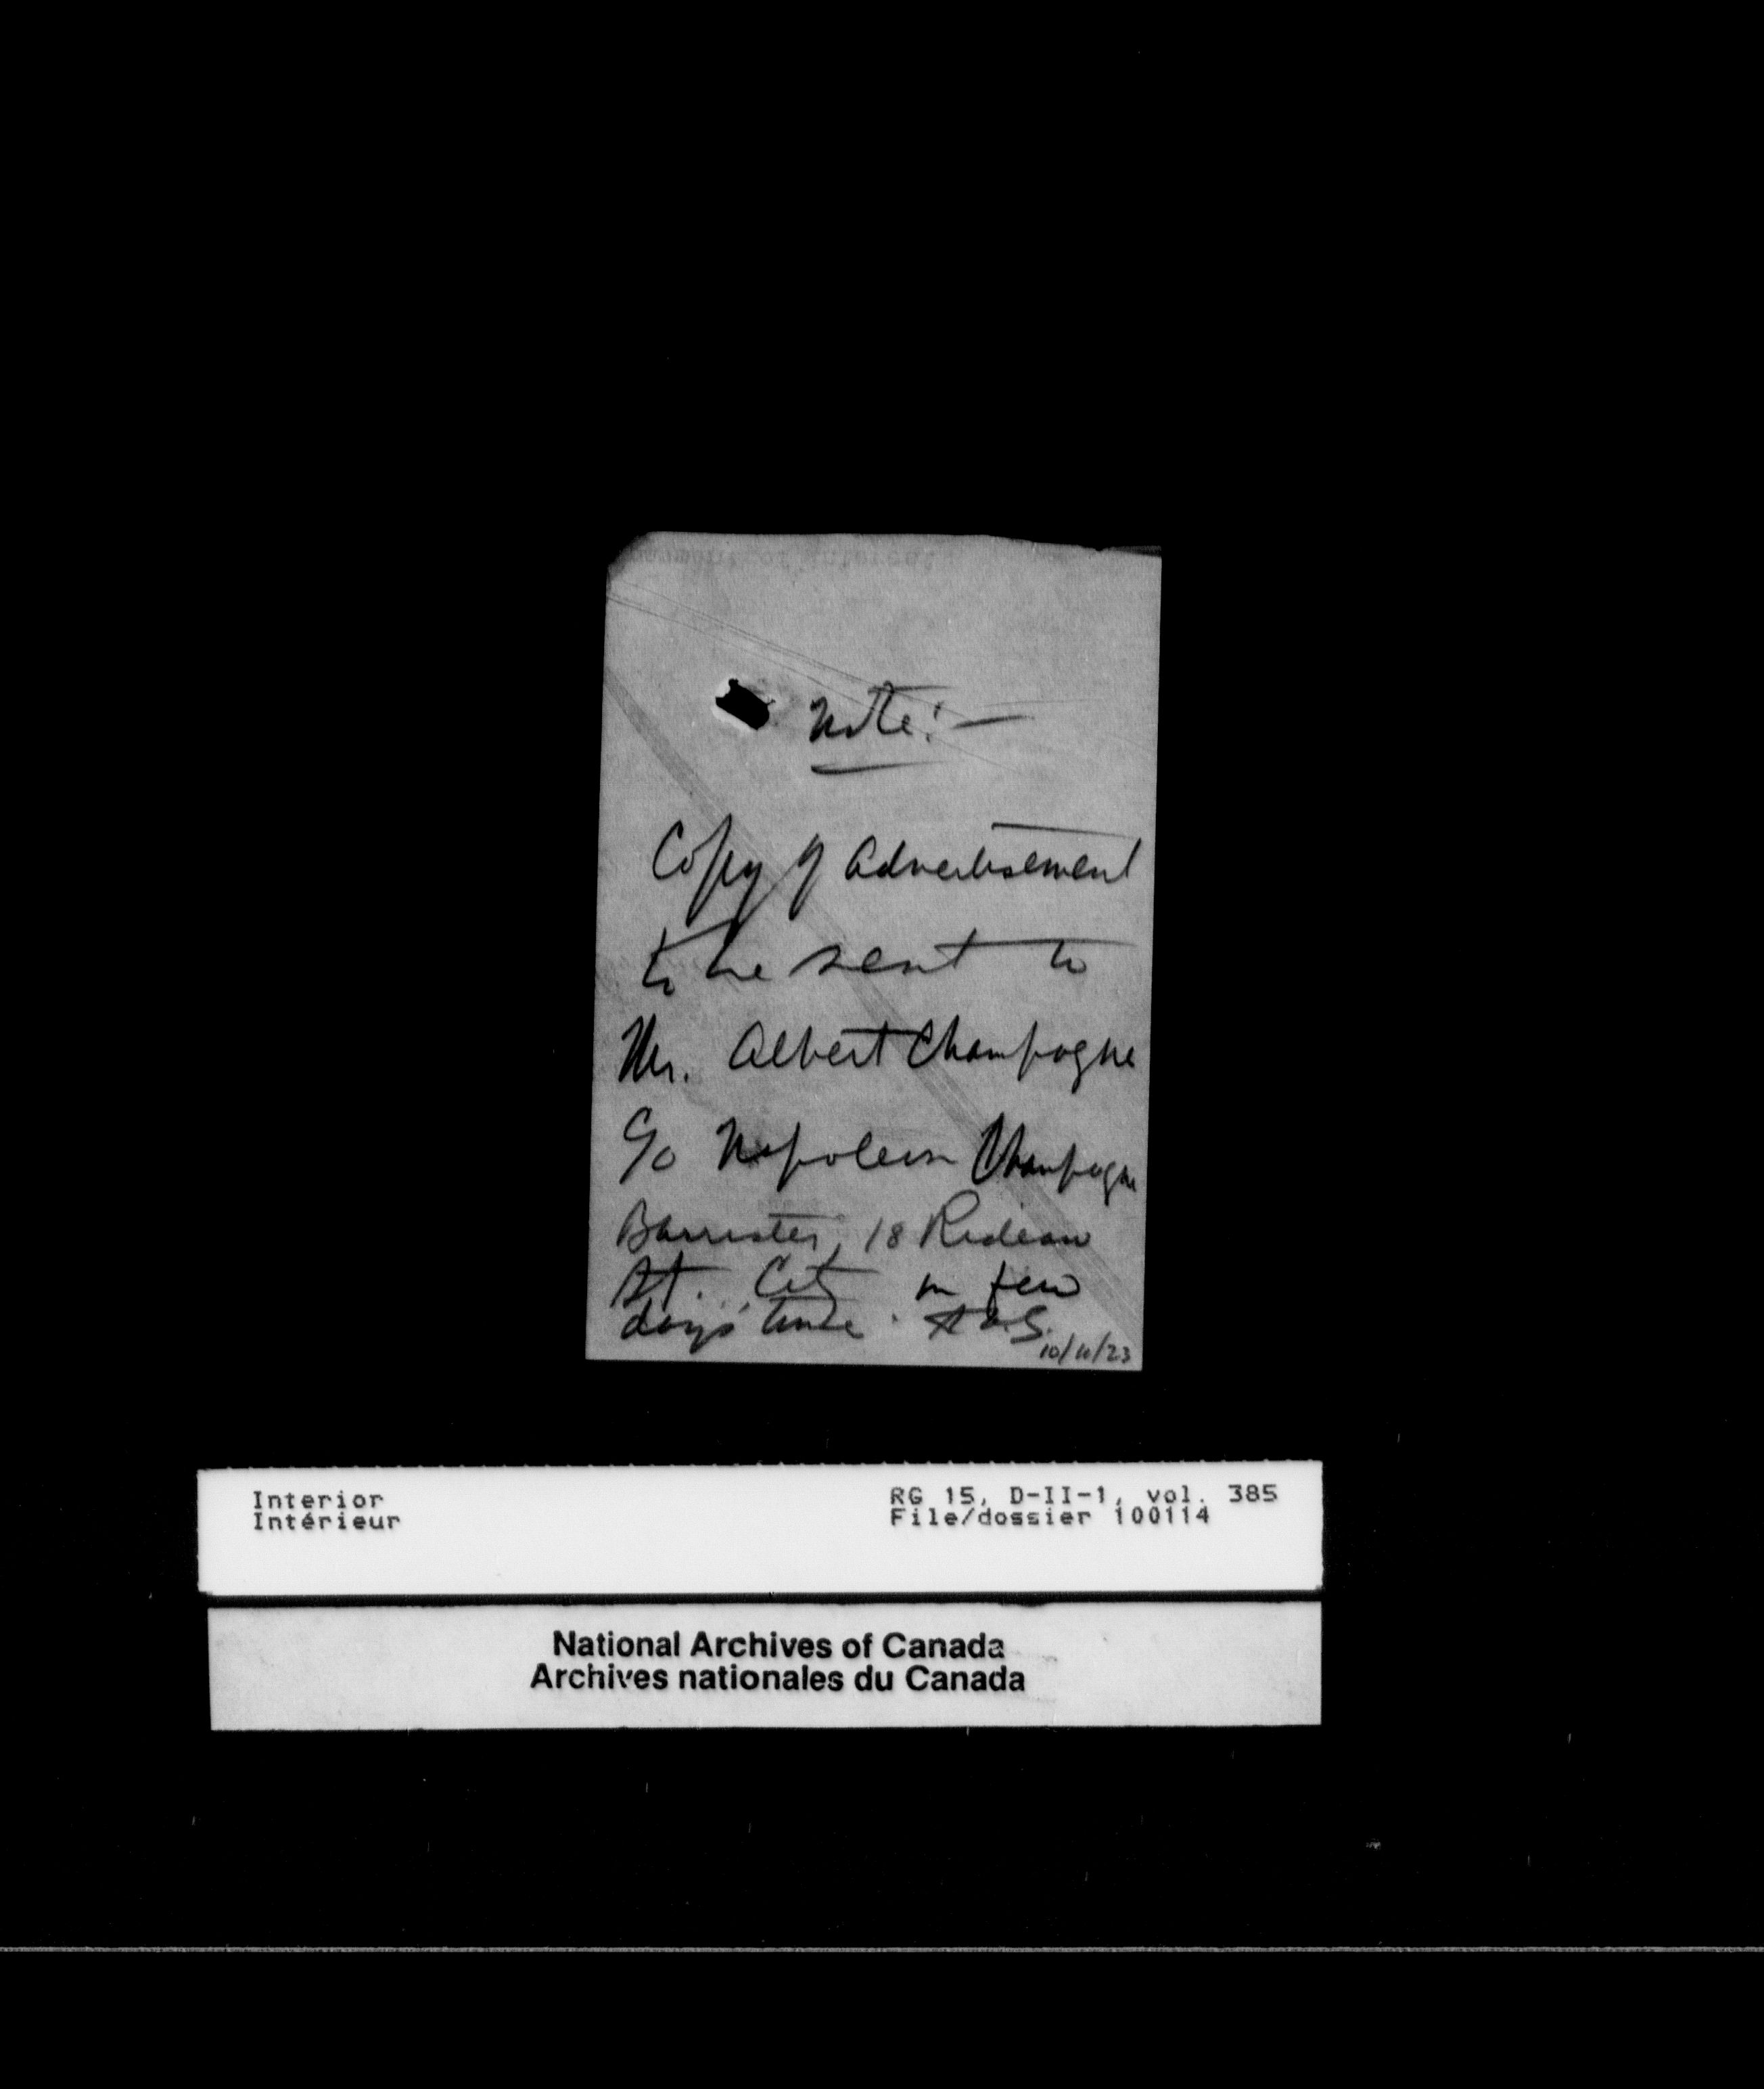 Note:—
Copy of Advertisement
to be sent to
Mr. Albert Champagne
c/o Napoleon Champagne
Barrister, 18 Rideau
St., City in few
days' time.
Interior
Intérieur
RG 15, D-II-1, vol. 385
File/dossier 100114
National Archives of Canada
Archives nationales du Canada